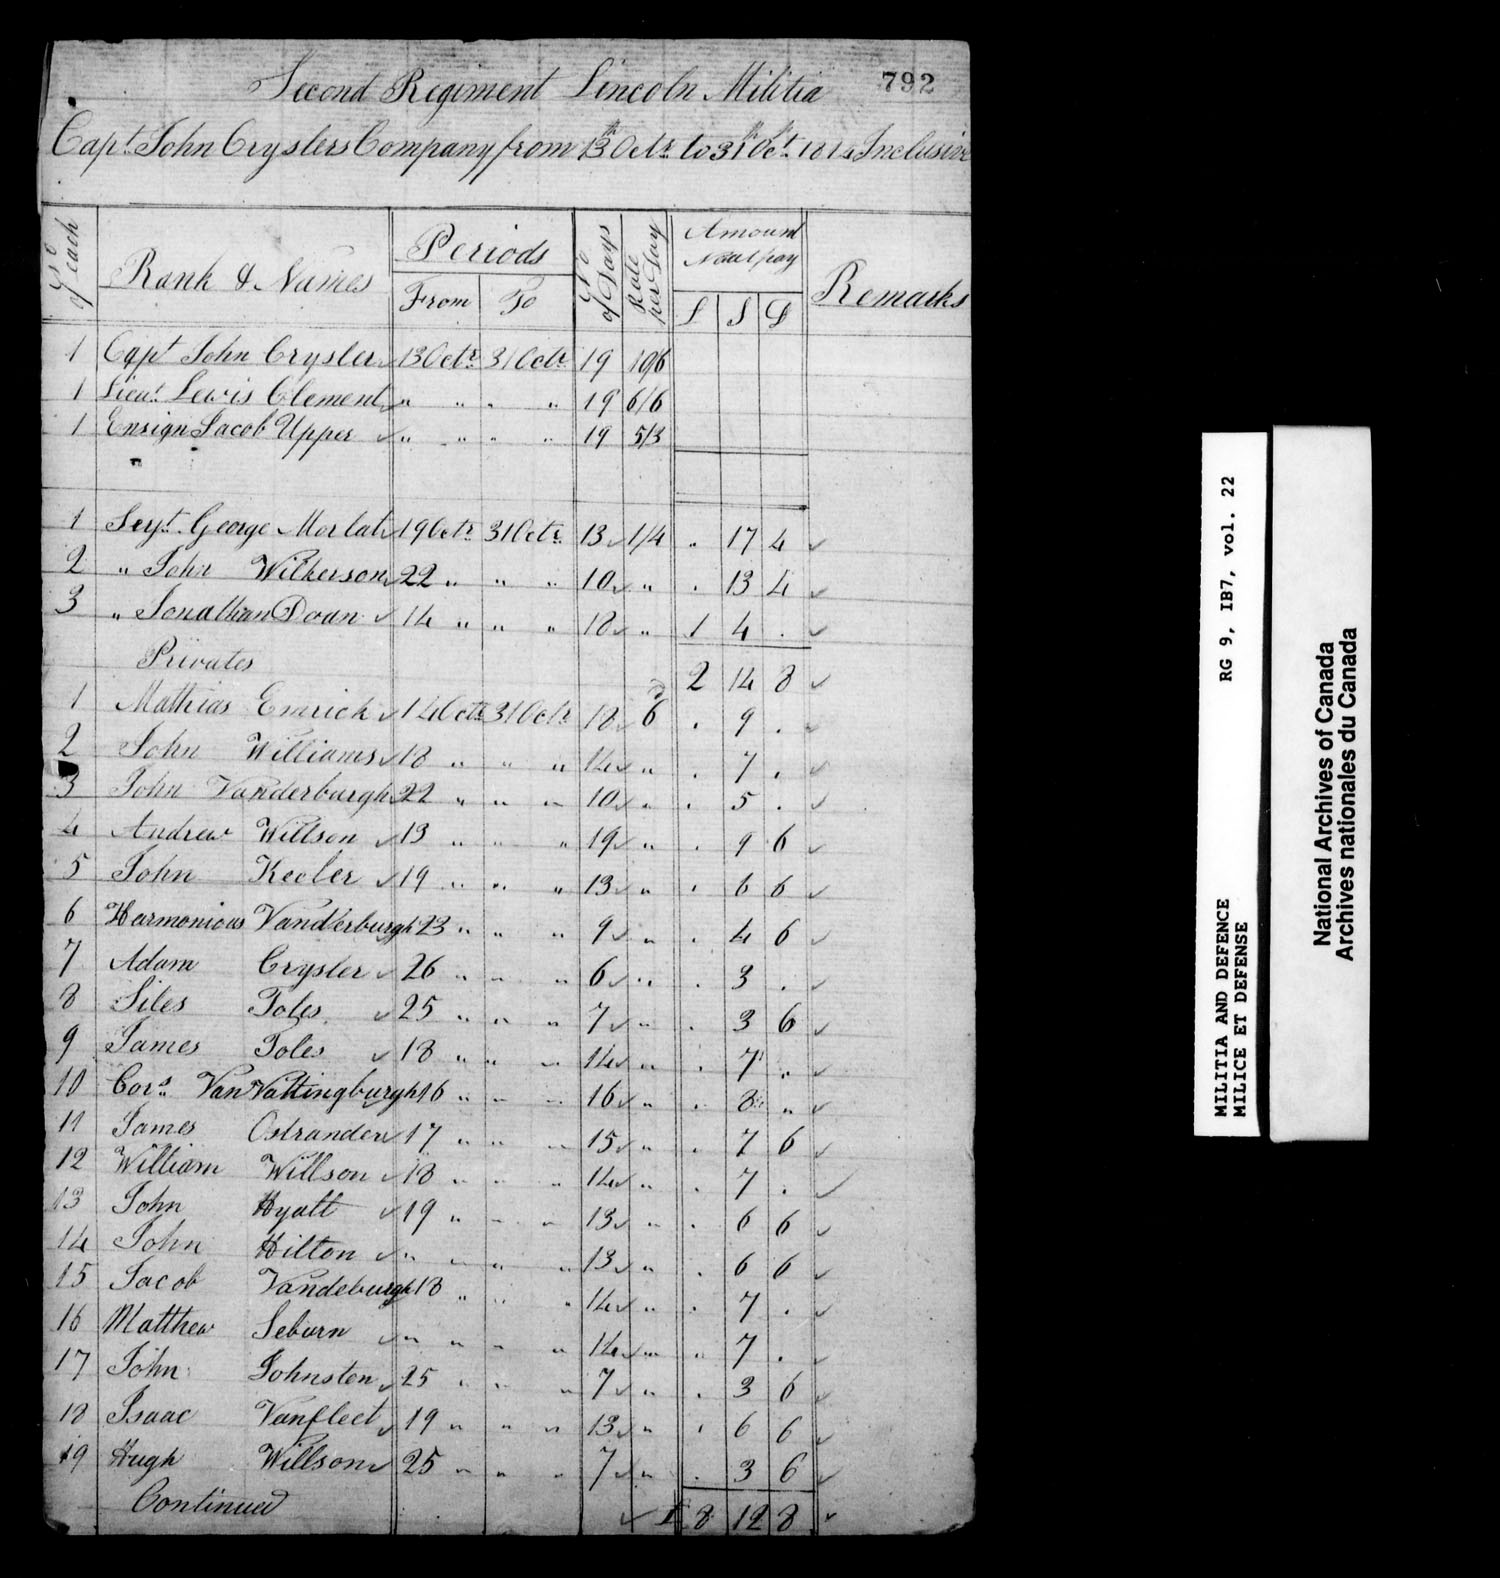 792
Second Regiment Lincoln Militia
Capt. John Cryslers Company from 13th Octr. to 31st Oct. 181 Inclusive
No of each | Rank & Names | Periods | No of Days | Rate per Day | Amount Neat pay | Remarks
From | To | £ | S | D
1 Capt John Crysler 13 Octr. 31 Octr. 19 10/6
1 Lieut. Lewis Clement " " " " 19 6/6
1 Ensign Jacob Upper " " " " 19 5/3
1 Serjt. George Morlat 19 Octr. 31 Octr. 13 1/4 . 17 4
2 " John Wilkerson 22 " " " 10 " . 13 4
3 " Jonathan Doan 14 " " " 18 " 1 4 .
Privates 2 14 8
1 Mathias Emrick 14 Octr. 31 Octr. 18 6d . 9 .
2 John Williams 18 " " " 14 " . 7 .
3 John Vanderburgh 22 " " " 10 " . 5 .
4 Andrew Willson 13 " " " 19 " . 9 6
5 John Keeler 19 " " " 13 " . 6 6
6 Harmonious Vanderburgh 23 " " " 9 " . 4 6
7 Adam Crysler 26 " " " 6 " . 3 .
8 Siles Toles 25 " " " 7 " . 3 6
9 James Toles 18 " " " 14 " . 7 "
10 Cors. VanVattingburgh 16 " " " 16 " . 8 "
11 James Ostrander 17 " " " 15 " . 7 6
12 William Willson 18 " " " 14 " . 7 .
13 John Hyatt 19 " " " 13 " . 6 6
14 John Hilton " " " " 13 " . 6 6
15 Jacob Vandeburgh 18 " " " 14 " . 7 .
16 Matthew Seburn " " " " 14 " " 7 .
17 John Johnston 25 " " " 7 " . 3 6
18 Isaac Vanfleet 19 " " " 13 " . 6 6
19 Hugh Willson 25 " " " 7 " . 3 6
Continued £ 8 12 8
RG 9, IB7, vol. 22
MILITIA AND DEFENCE
MILICE ET DEFENSE
National Archives of Canada
Archives nationales du Canada